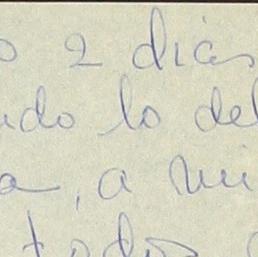 o 2 dias
ndo lo del
a, a mi
todos